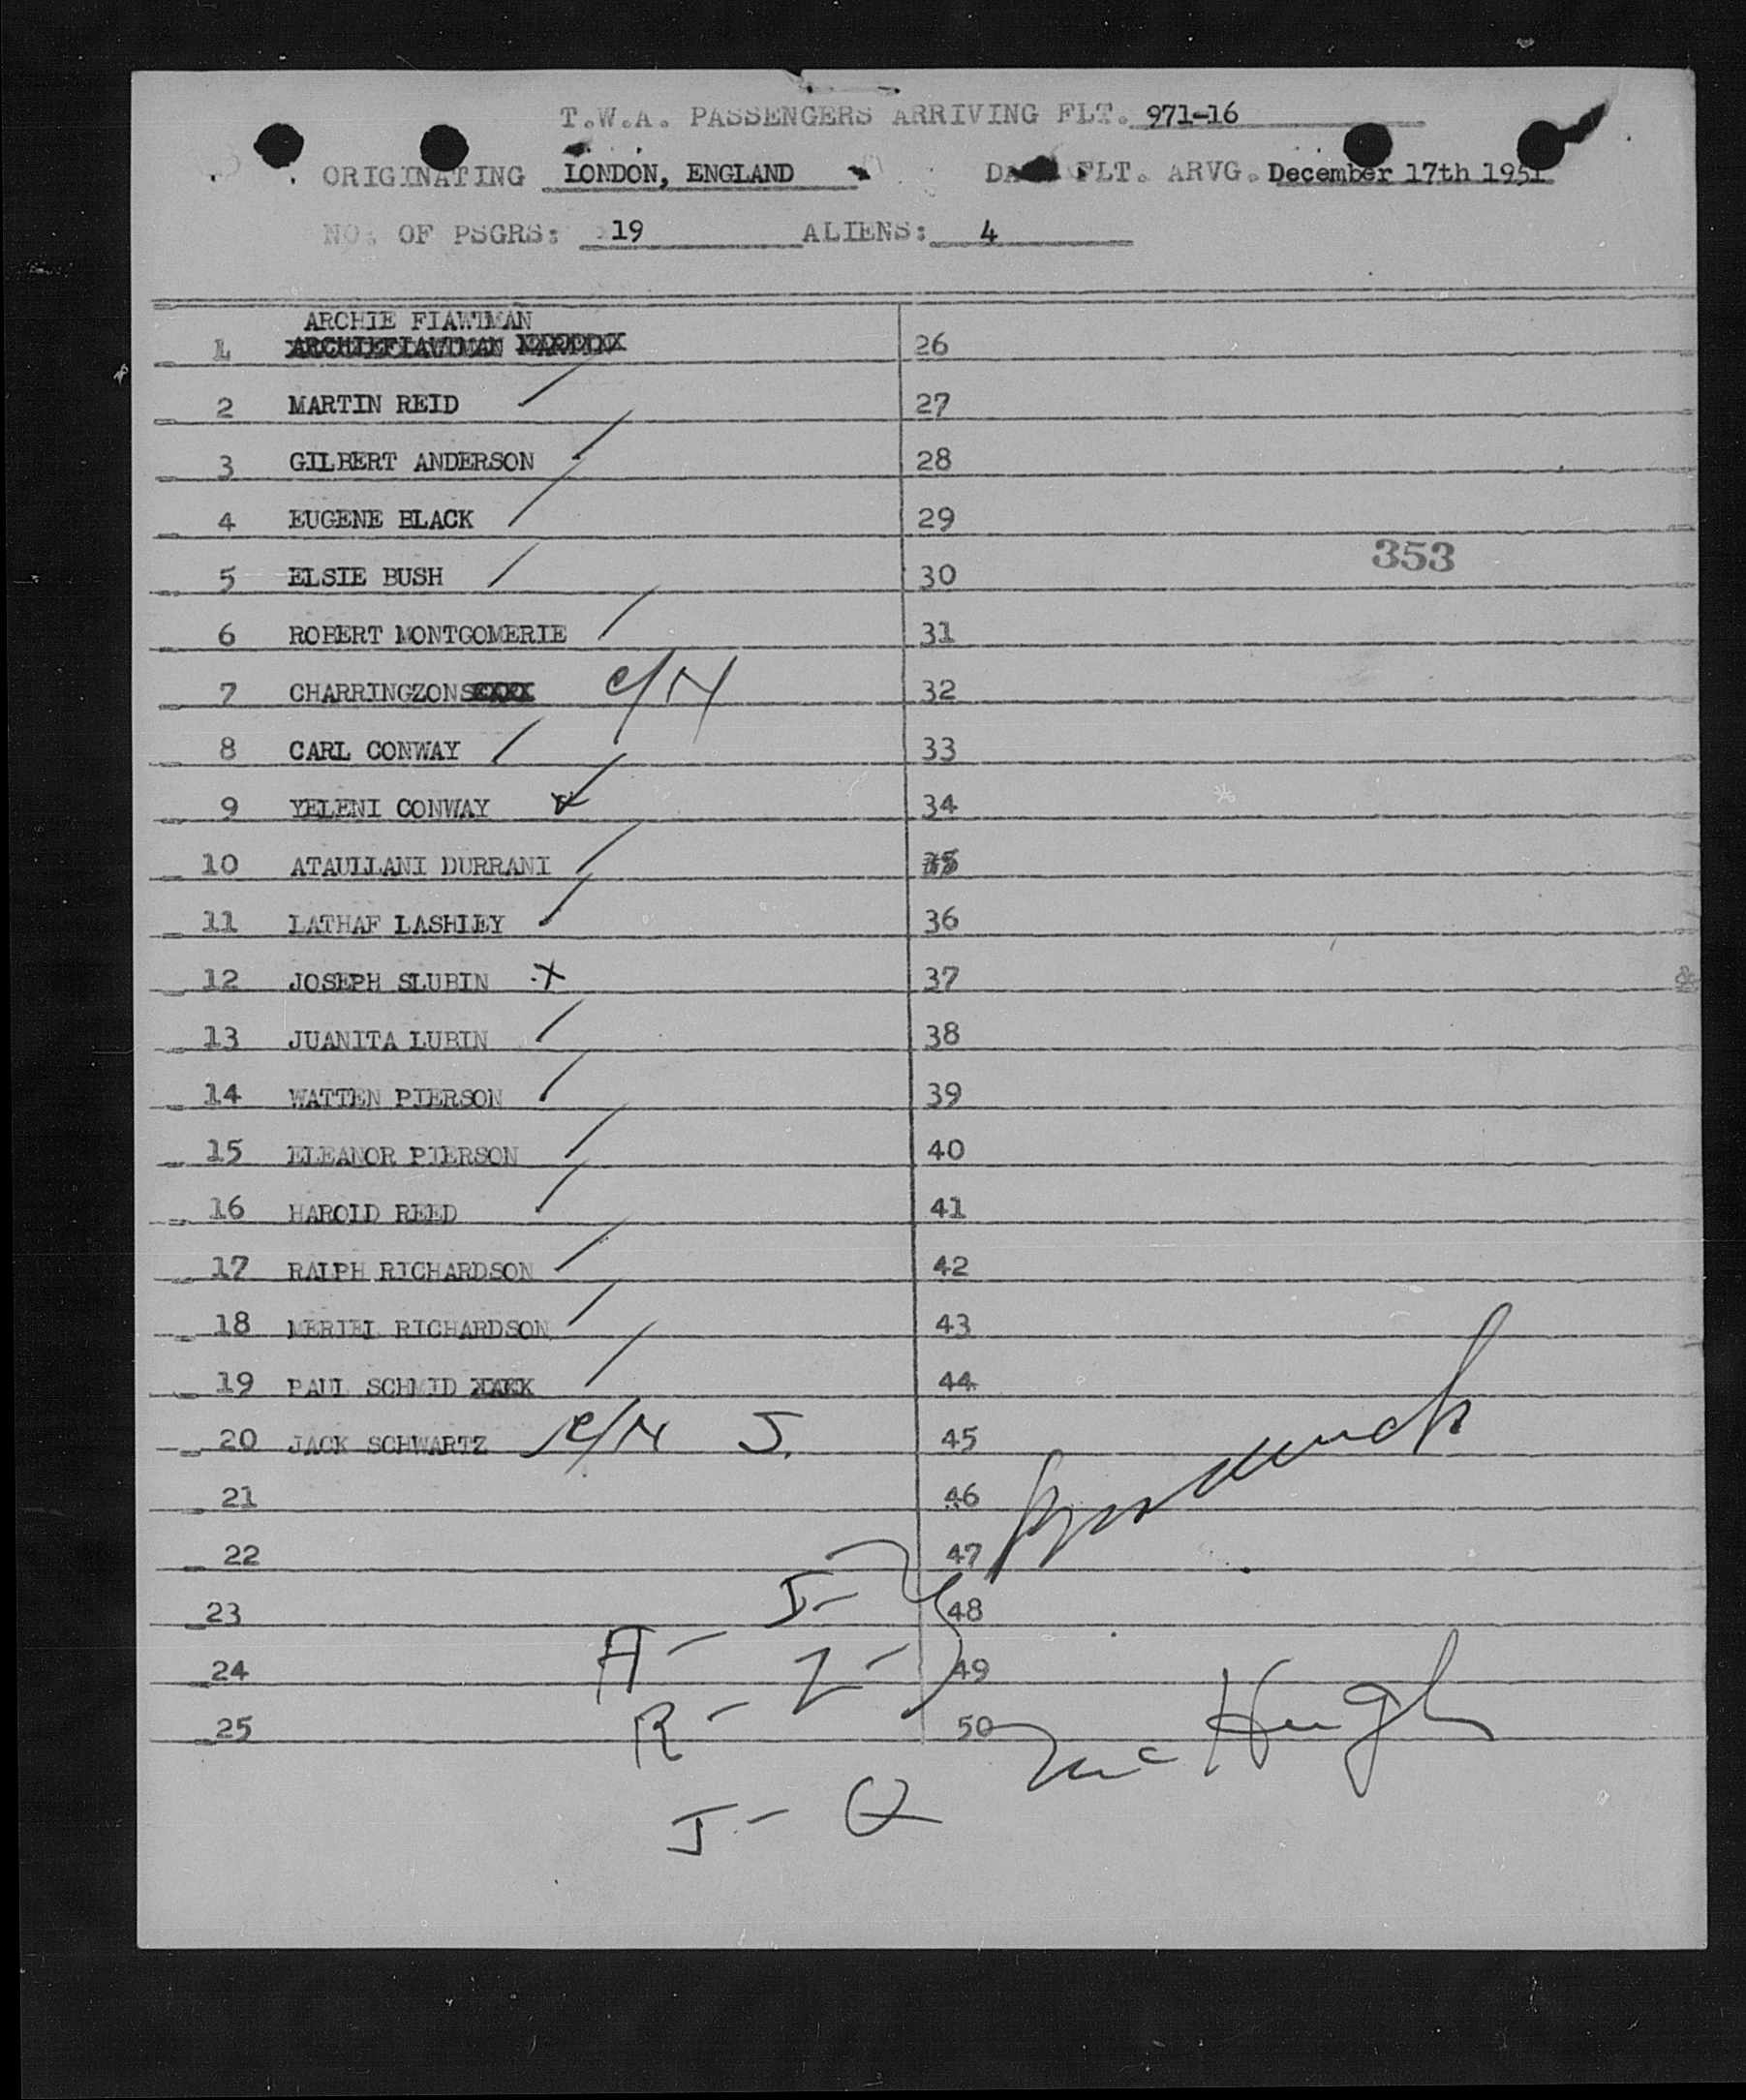 T.W.A. PASSENGERS ARRIVING FLT. 971-16
ORIGINATING LONDON, ENGLAND FLT. ARVG. December 17th 1951
NO. OF PSGRS: 19 ALIENS: 4
ARCHIE FIAWTMAN
1 26
2 MARTIN REID 27
3 GILBERT ANDERSON 28
4 EUGENE BLACK 29
353
5 ELSIE BUSH 30
6 ROBERT MONTGOMERIE 31
7 CHARRINGZON C/N 32
8 CARL CONWAY 33
9 YELENI CONWAY 34
10 ATAULLANI DURRANI 35
11 LATHAF LASHLEY 36
12 JOSEPH SLUBIN X 37
13 JUANITA LUBIN 38
14 WATTEN PIERSON 39
15 ELEANOR PIERSON 40
16 HAROLD REED 41
17 RALPH RICHARDSON 42
18 MERIEL RICHARDSON 43
19 PAUL SCHMID 44
20 JACK SCHWARTZ C/N S. 45
21 46
22 47
23 48
24 A- 49
25 R- 50
McHugh